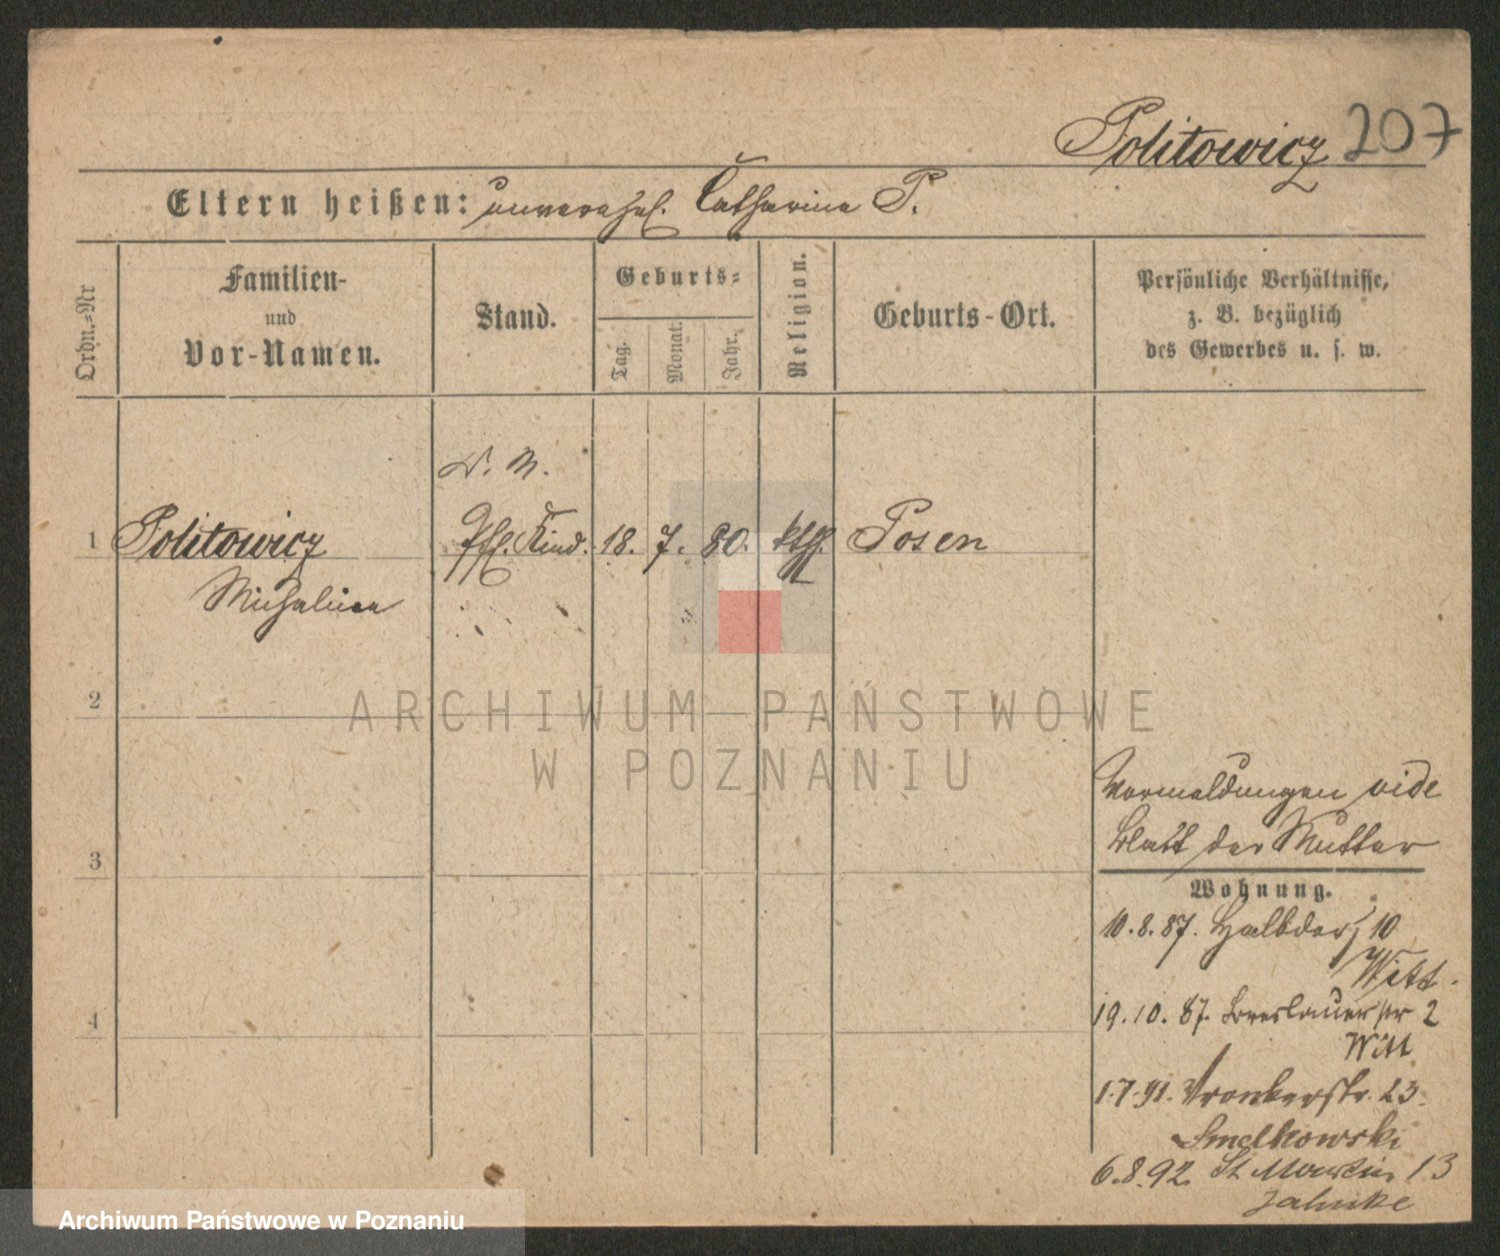 Politowicz 207
Eltern heißen: unverehel. Catharina P.
Ordn.-Nr
Familien-
und
Vor-Namen.
Stand.
Geburts-
Tag.
Monat.
Jahr.
Religion.
Geburts-Ort.
Persönliche Verhältnisse,
z. B. bezüglich
des Gewerbes u. s. w.
1 Politowicz Kind. 18. 7. 80. kth. Posen
Michalina
2
3
4
Vormeldungen vide
Blatt der Mutter
Wohnung.
10.8.87. Halbdorf 10
Witt.
19.10.87. Breslauerstr 2
Witt
1.7.91. Wronkerstr. 23.
Smelkowski
6.8.92. St Martin 13
Jahnke
ARCHIWUM PAŃSTWOWE
W POZNANIU
Archiwum Państwowe w Poznaniu